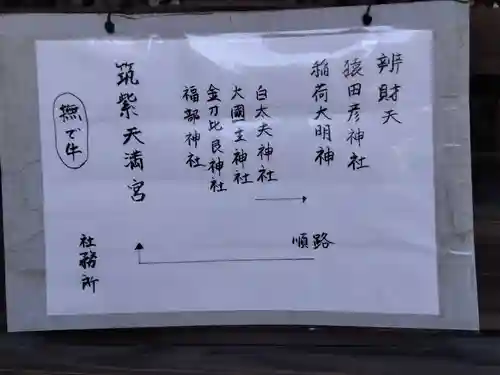 辨財天
猿田彦神社
稲荷大明神
白太夫神社
火國主神社
金刀比良神社
福部神社
筑紫天満宮
撫で牛
順路
社務所